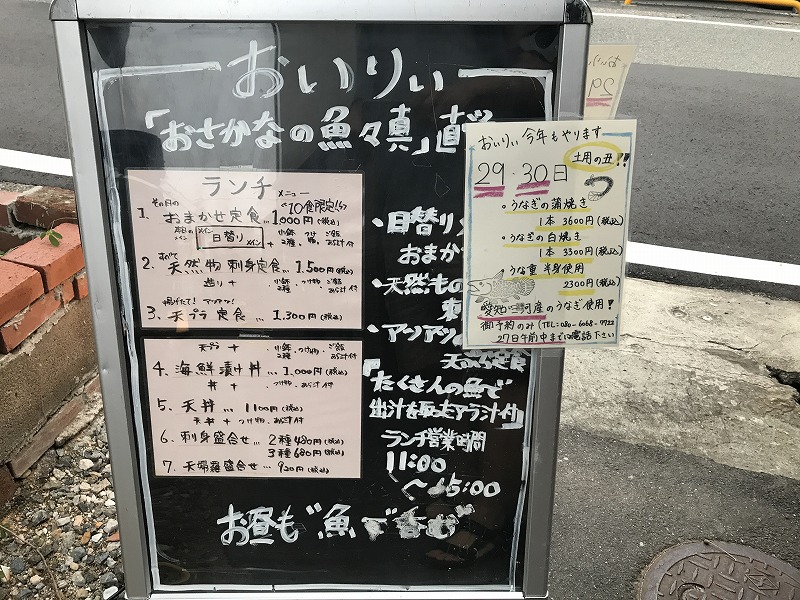 おいりぃ
「おさかなの魚々真」直
ランチ メニュー
その日の "10食限定!!"
1. おまかせ定食…1,000円(税込)
本日のメイン
メイン
日替り メイン + 小鉢2種、つけ物、ご飯、あら汁付
2. 天然物 刺身定食…1,500円(税込)
造り + 小鉢2種、つけ物、ご飯 あら汁付
揚げたて! アツアツ!
3. 天プラ 定食…1,300円(税込)
天プラ + 小鉢2種、つけ物、ご飯 あら汁付
4. 海鮮漬け丼…1,000円(税込)
丼 + つけ物、あら汁付
5. 天丼…1100円(税込)
天丼 + つけ物、あら汁付
6. 刺身盛合せ…2種480円(税込)
3種680円(税込)
7. 天婦羅盛合せ…930円(税込)
・日替り
おまか
・天然もの
・アツアツの
天ぷら定食
『たくさんの魚で
出汁を取ったアラ汁付』
ランチ営業時間
11:00
〜15:00
お昼も"魚で呑む"
おいりぃ 今年もやります
29・30日 土用の丑!!
・うなぎの蒲焼き
1本 3600円(税込)
・うなぎの白焼き
1本 3300円(税込)
うな重 半身使用
2300円(税込)
愛知 三河産のうなぎ使用!
御予約のみ (TEL:080-6068-7722
27日午前中までに電話下さい
29